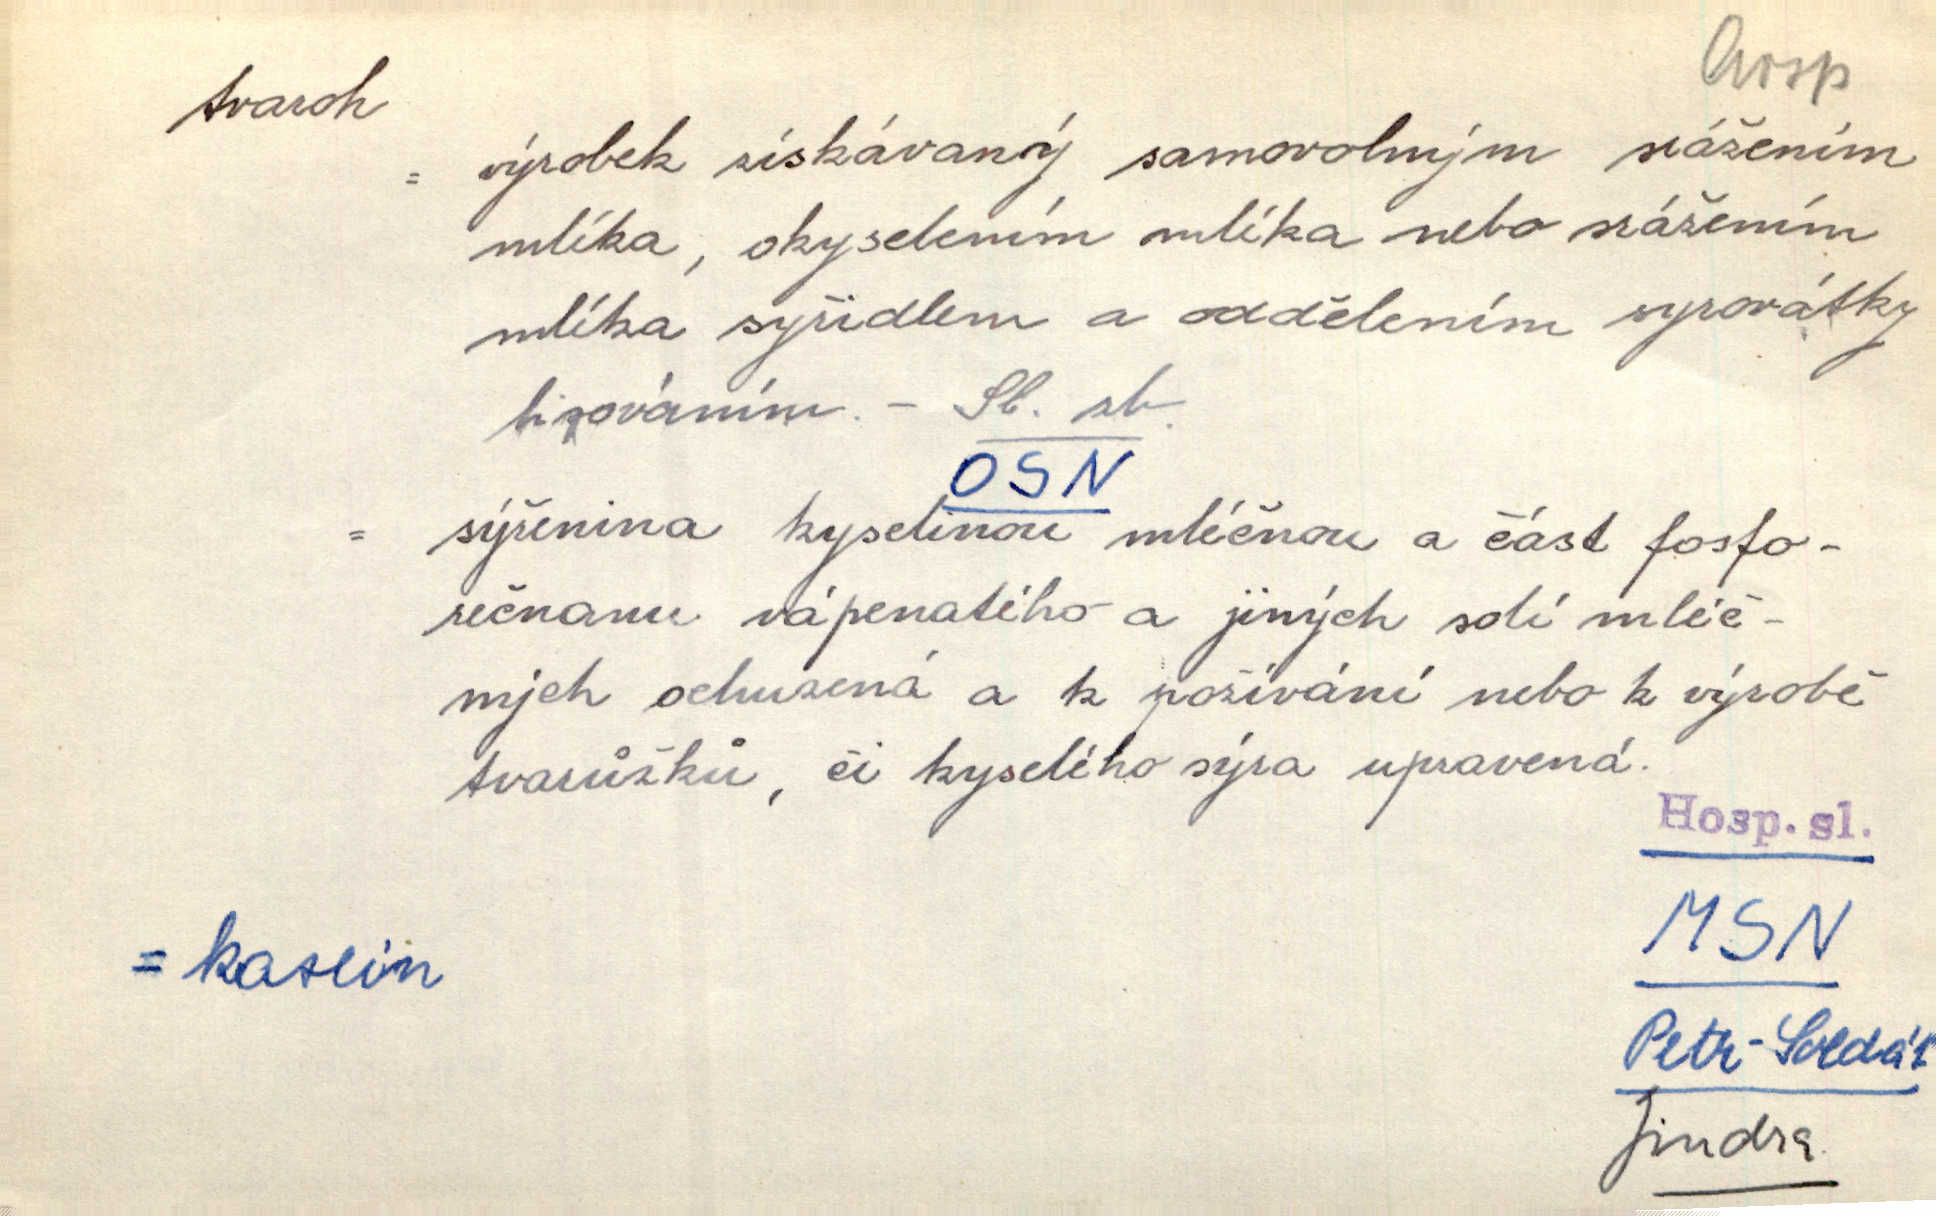 Hosp
tvaroh
= výrobek získávaný samovolným srážením
mlíka, okyselením mlíka nebo srážením
mlíka syřidlem a oddělením syrovátky
lisováním. - Sb. zb.
OSN
= sýřenina kyselinou mléčnou a část fosfo-
rečnanu vápenatého a jiných solí mléč-
ných ochuzená a k požívání nebo k výrobě
tvarůžků, či kyselého sýra upravená.
Hosp. sl.
MSN
= kasein
Petr-Soldát
Jindra